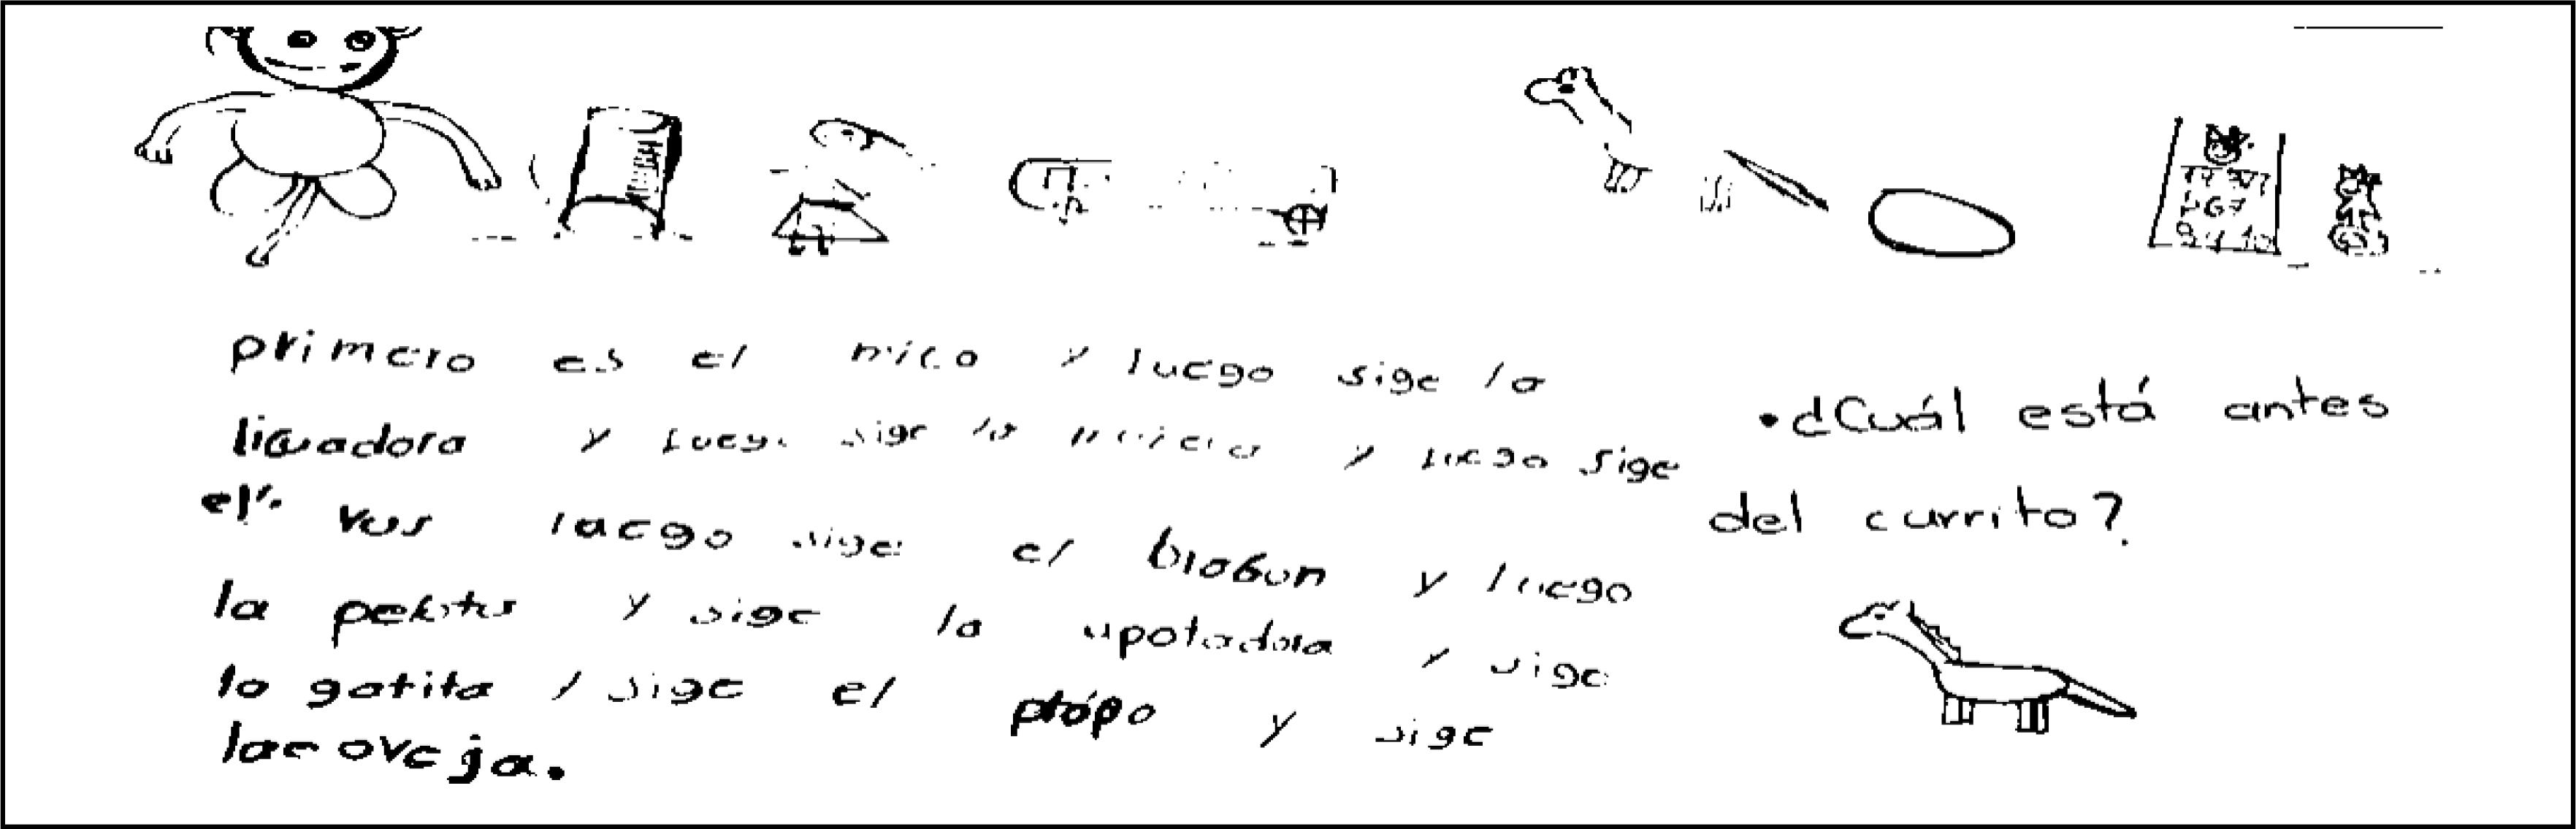 primero es el mico y luego sige la
licuadora y luego sige la y luego sige
el luego sige el y luego
la y sige la y sige
la gatita y sige el y sige
la oveja.
•¿Cuál está antes
del currito?